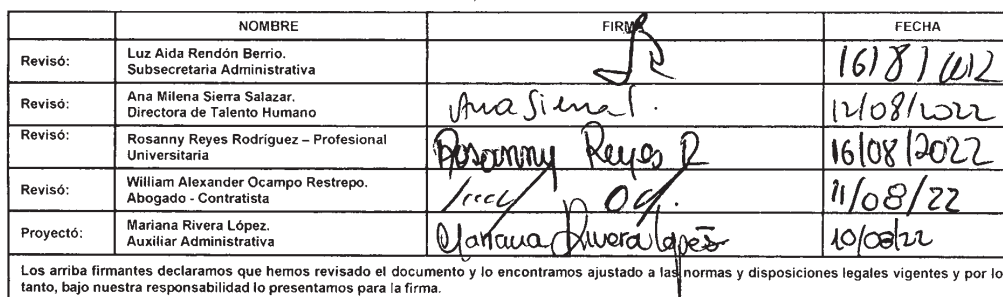 NOMBRE FIRMA FECHA
Revisó: Luz Aida Rendón Berrio.
Subsecretaria Administrativa
16/8/
Revisó: Ana Milena Sierra Salazar.
Directora de Talento Humano
Ana Sierra S. 12/08/2022
Revisó: Rosanny Reyes Rodríguez – Profesional
Universitaria
Rosanny Reyes R 16/08/2022
Revisó: William Alexander Ocampo Restrepo.
Abogado - Contratista
11/08/22
Proyectó: Mariana Rivera López.
Auxiliar Administrativa
Mariana Rivera López 10/08/22
Los arriba firmantes declaramos que hemos revisado el documento y lo encontramos ajustado a las normas y disposiciones legales vigentes y por lo
tanto, bajo nuestra responsabilidad lo presentamos para la firma.